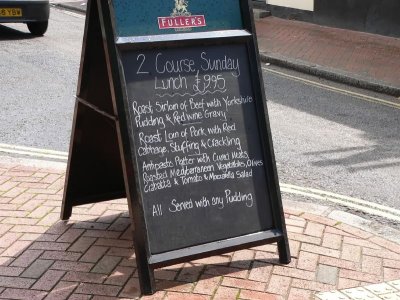 FULLER'S
2 Course, Sunday
Lunch £9.95
Roast Sirloin of Beef with Yorkshire
Pudding & Red wine Gravy
Roast Loin of Pork with Red
Cabbage, Stuffing & Crackling
Antipasto Platter with Cured Meats,
Roasted Mediterranean Vegetables, Olives
Ciabatta & Tomato & Mozzarella Salad
All Served with any Pudding